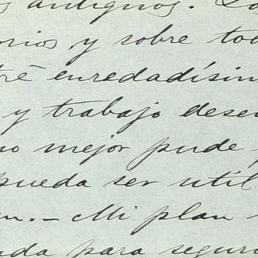 antiguos. 
orios y sobre to
tré enredadísim
y trabajo dese
o mejor pude
pueda ser util
n.- Mi plan
da para segur